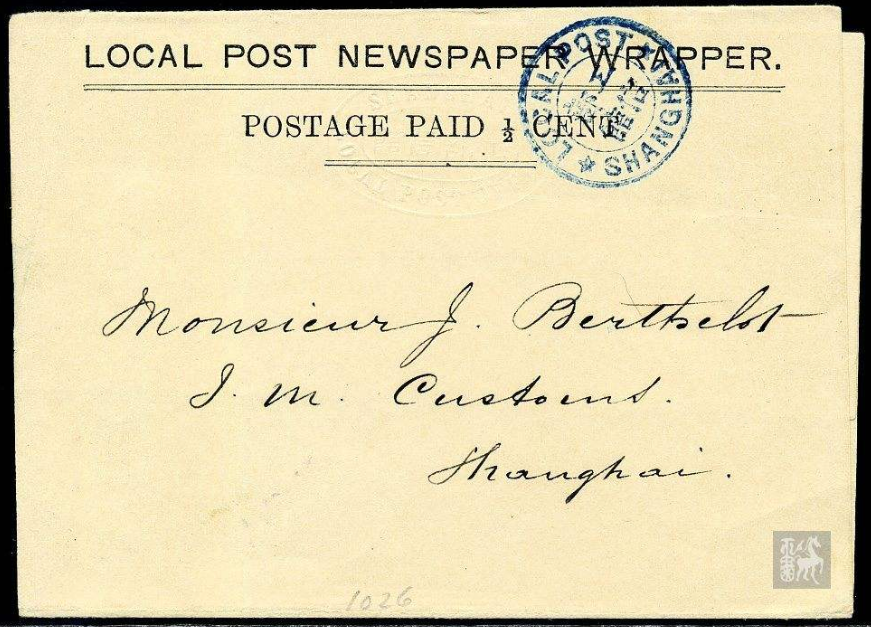 LOCAL POST NEWSPAPER WRAPPER.
POSTAGE PAID ½ CENT
LOCAL POST
SHANGHAI
Monsieur J. Berthelot
I. M. Customs.
Shanghai.
1026